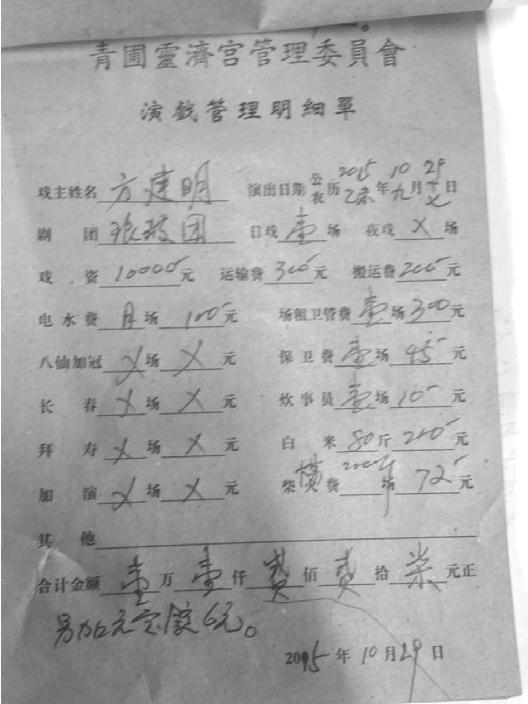 青圃靈濟宫管理委員會
演戲管理明細單
戏主姓名 方建明 演出日期 公历 2015 年 10 月 29 日
农 乙未 九 十七
剧 团 团 日戏 壹 场 夜戏 X 场
戏 资 10000 元 运输费 300 元 搬运费 200 元
电水费 日 场 100 元 场租卫管费 壹 场 300 元
八仙加冠 X 场 X 元 保卫费 壹 场 45 元
长 春 X 场 X 元 炊事员 壹 场 10 元
拜 寿 X 场 X 元 白 米 80 斤 200 元
加 演 X 场 X 元 柴 费 场 72 元
其 他
合计金额 壹 万 壹 仟 贰 佰 贰 拾 柒 元正
另加 元宝 6元。
2015 年 10 月 29 日